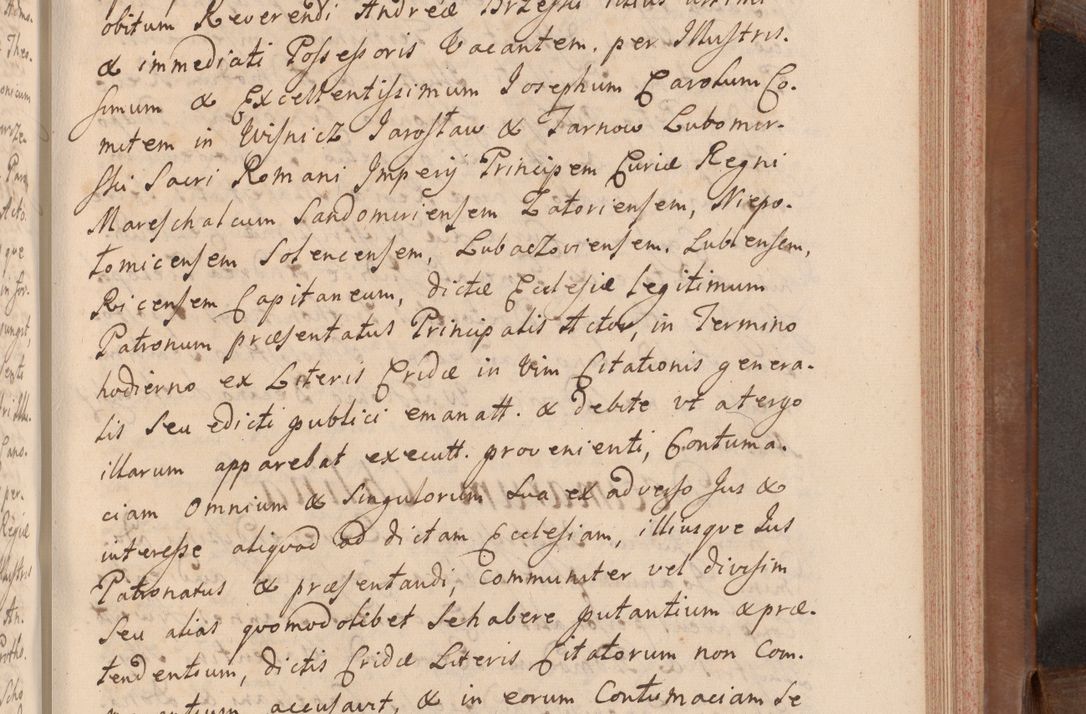 obitum Reverendi Andreæ
& immediati Possessoris Vacantem. per Illustris.
simum & Excellentissimum Josephum Carolum Co.
mitem in Wisnicz Jarosław & Tarnow Lubomir.
ski Sacri Romani Imperij Principem Curiæ Regni
Mareschalcum Sandomiriensem Zatoriensem, Niepo.
lomicensem Solencensem, Lubaczoviensem. Lublensem,
Ricensem Capitaneum, dictæ Ecclesiæ legitimum
Patronum præsentatus Principalis Actor, in Termino
hodierno ex Literis Cridæ in Vim Citationis genera.
lis seu edicti publici emanatt. & debite ut a tergo
illarum apparebat executt. provenienti, Contuma.
ciam Omnium & Singulorum Sua ex adverso Jus &
interesse aliquod ad dictam Ecclesiam, illiusque Jus
Patronatus & præsentandi, Communiter vel divisim
seu alias quomodolibet Se habere putantium & præ.
tendentium, dictis Cridæ Literis Citatorum non Com.
accusavit, & in eorum Contumaciam Se